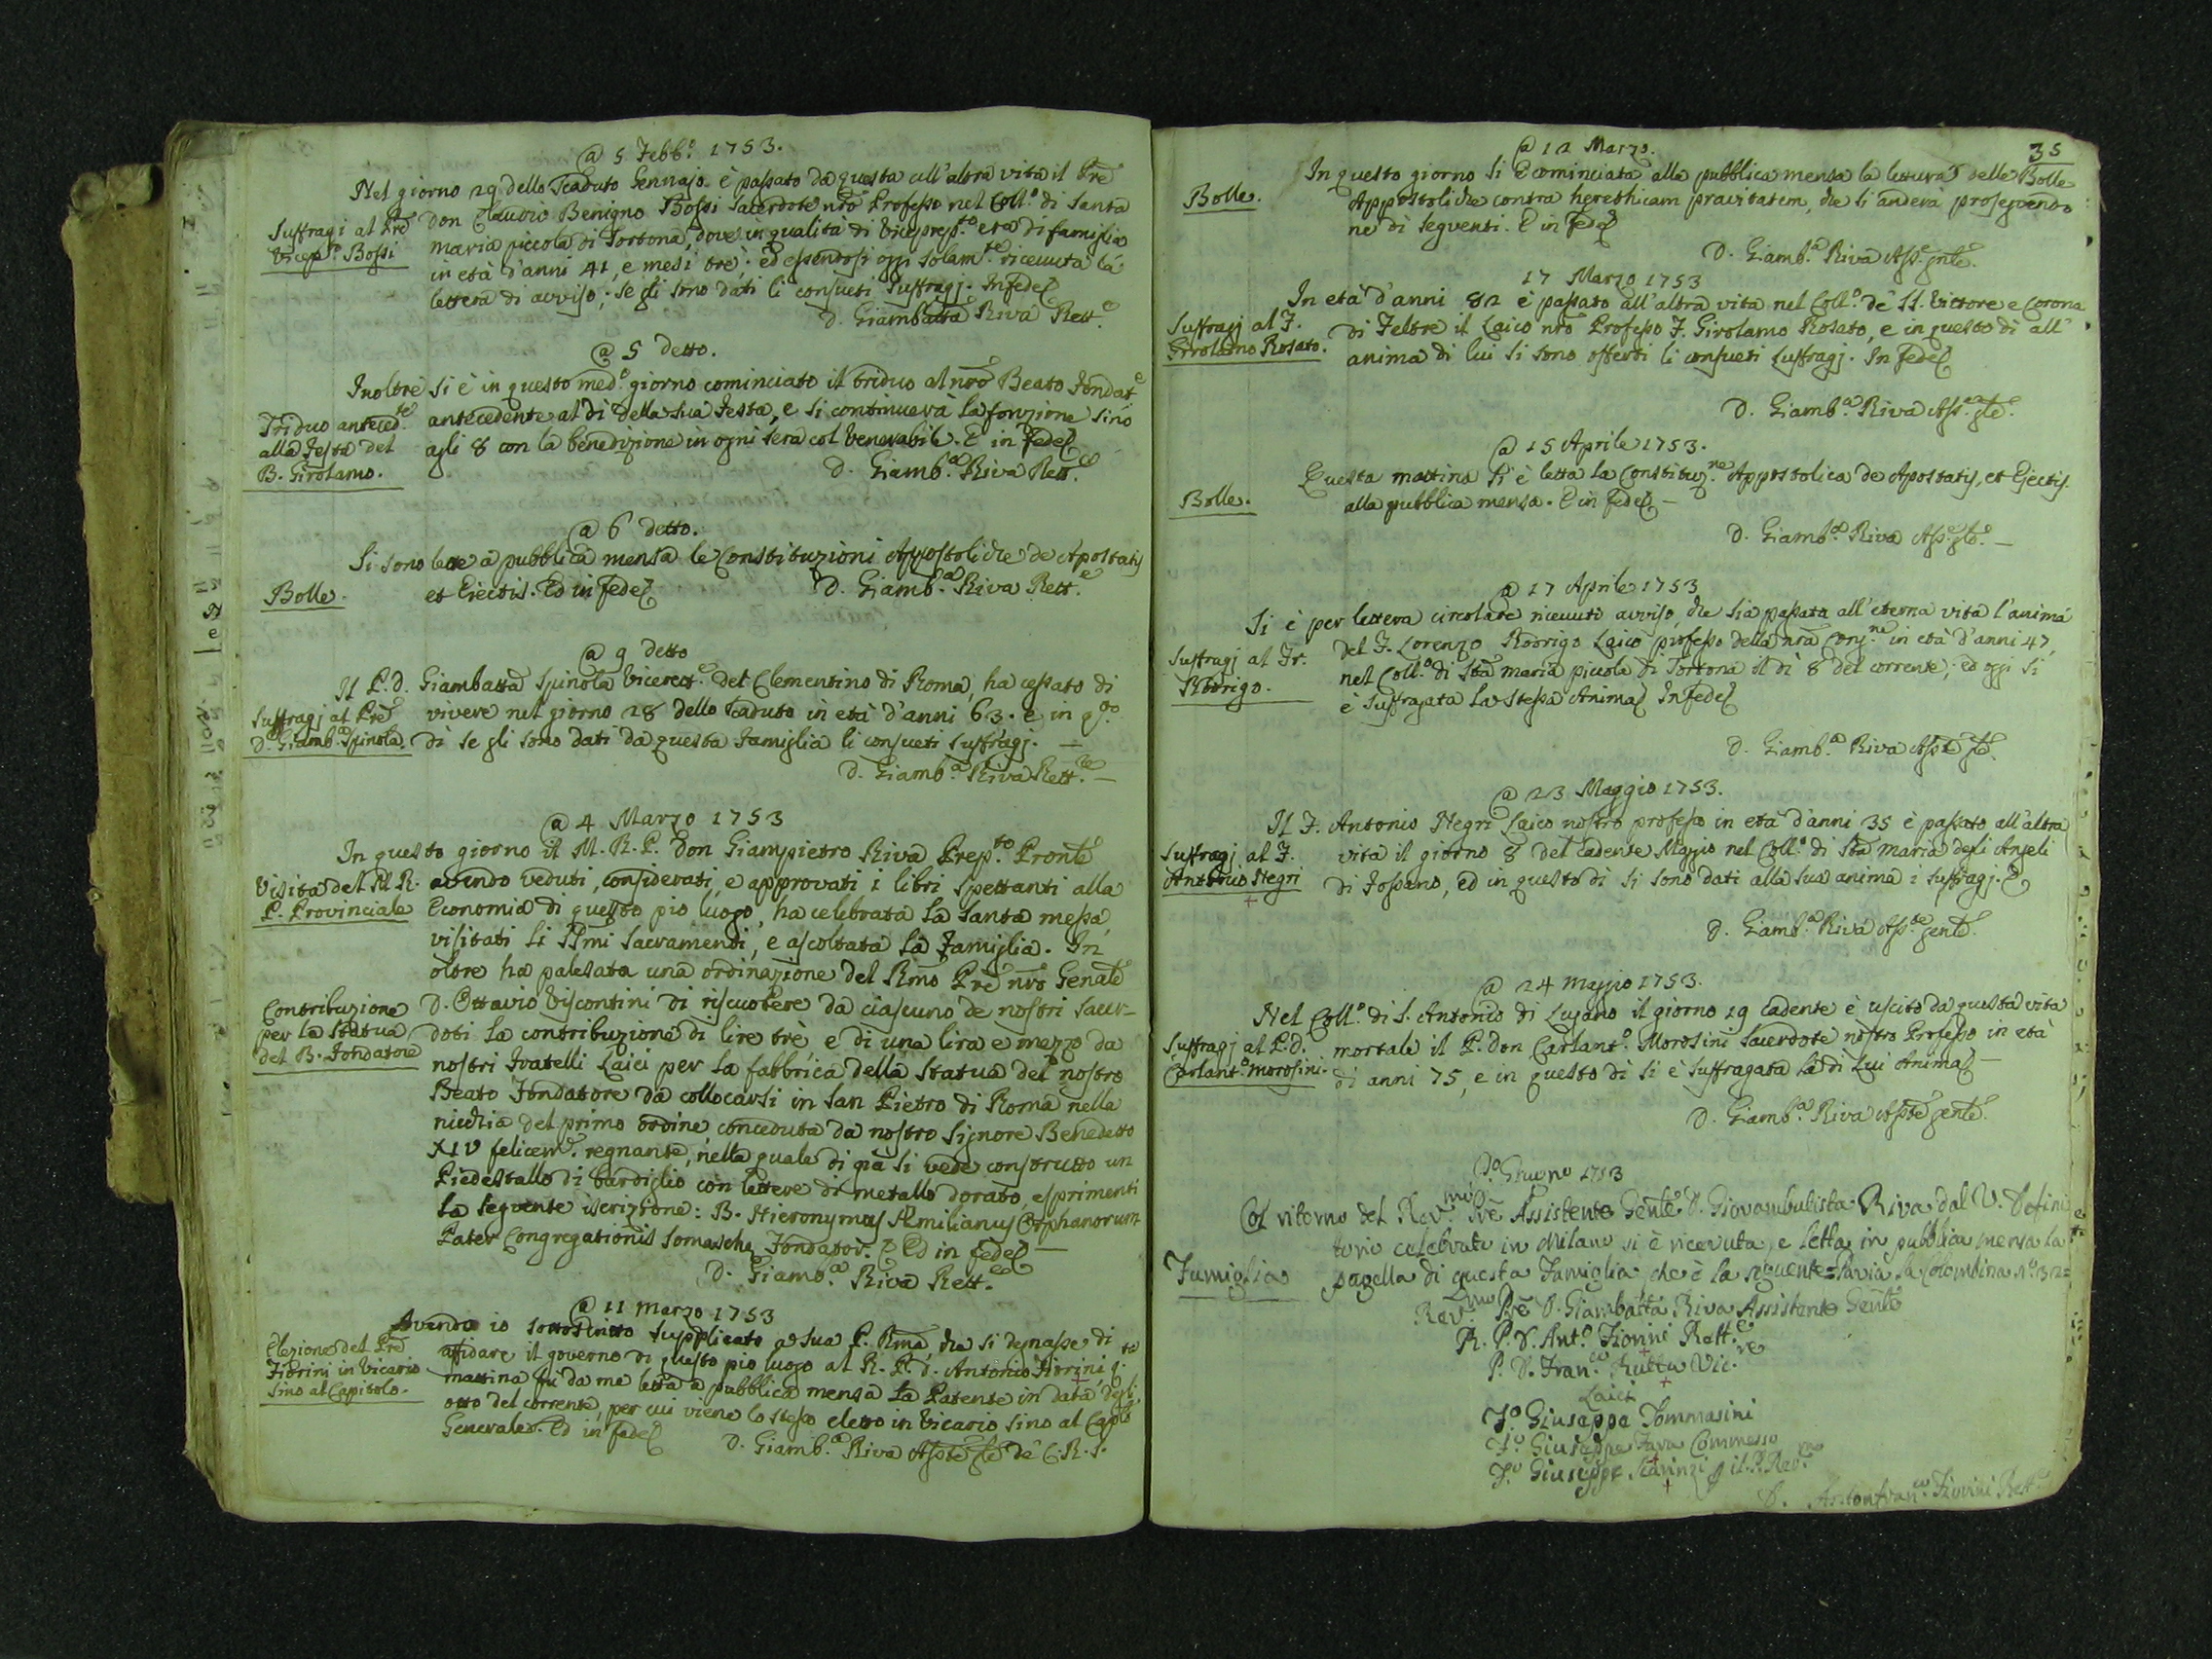 @ 5 Febb.º 1753.
Nel giorno 29 dello scaduto Gennajo è passato da questa all'altra vita il Prẽ
Suffragi al Prẽ
Vicep.º Bossi
don Claudio Benigno Bossi Sacerdote nrõ Professo nel Coll.º di Santa
maria piccola di Tortona, dove in qualità di Viceprep.to era di famiglia
in età d'anni 41, e mesi tre; ed essendosi oggi solam.te ricevuta la
lettera di avviso, se gli sono dati li consueti suffragj. In fede
D. Giambatta Riva Rett.e
@ 5 detto.
Inoltre si è in questo med.º giorno cominciato il triduo al nrõ Beato Fondat.e
Triduo anteced.te
alla festa del
B. Girolamo.
antecedente al dì della sua Festa, e si continuerà la fonzione sino
agli 8 con la benedizione in ogni sera col Venerabile. E in fede
D. Giamb.a Riva Rett.e
@ 6 detto.
Si sono lette a pubblica mensa le Constituzioni Appostoliche de Apostatis
Bolle.
et Eiectis. Ed in fede
D. Giamb.a Riva Rett.e
@ 9 detto
Il P. d. Giambatta Spinola Vicerett.e del Clementino di Roma, ha cessato di
Suffragj al Prẽ
D. Giamb.a Spinola.
vivere nel giorno 28 dello scaduto in età d'anni 63. e in q.to
dì se gli sono dati da questa famiglia li consueti suffragj. —
D. Giamb.a Riva Rett.e —
@ 4 Marzo 1753
In questo giorno il M. R. P. Don Giampietro Riva Prep.to Pronlẽ
Visita del M. R.
P. Provinciale
avendo veduti, considerati, e approvati i libri spettanti alla
Economia di questo pio luogo, ha celebrata la santa messa,
visitati li SSmi Sacramenti, e ascoltata la Famiglia. In
oltre ha palesata una ordinazione del Rmo Prẽ nrõ Genalẽ
Contribuzione
per la statua
del B. Fondatore
D. Ottavio Viscontini di riscuotere da ciascuno de nostri Sacer-
doti la contribuzione di lire trè e di una lira e mezzo da
nostri Fratelli Laici per la fabbrica della Statua del nostro
Beato Fondatore da collocarsi in San Pietro di Roma nella
nicchia del primo ordine, conceduta da nostro Signore Benedetto
XIV felicem.e regnante, nella quale di già si vede construtto un
Piedestallo di bardiglio con lettere di metallo dorato, esprimenti
la seguente iscrizione: B. Hieronymus Æmilianus Orphanorum
Pater Congregationis Somaschę Fondator. Ed in fede —
D. Giamb.a Riva Rett.e
@ 11 marzo 1753
Avendo io sottoscritto supplicato a Sua P. Rma, che si degnasse di
Elezione del Prẽ
Fiorini in Vicario
sino al Capitolo.
affidare il governo di questo pio luogo al R. P. d. Antonio Fiorini q.ta
mattina fu da me letta a pubblica mensa la Patente in data degli
otto del corrente, per cui viene lo stesso eletto in Vicario sino al Caplõ
Generale. Ed in fede
D. Giamb.a Riva Asstẽ Glẽ de C. R. S.
35
@ 12 Marzo.
In questo giorno si è cominciata alla pubblica mensa la lettura delle Bolle
Bolle.
Appostoliche contra herethicam pravitatem, che si anderà proseguendo
ne dì seguenti. E in fede
D. Giamb.a Riva Ass.e gnlẽ.
17 Marzo 1753
In età d'anni 82 è passato all'altra vita nel Coll.º de' SS. Vittore e Corona
Suffragj al F.
Girolamo Rosato.
di Feltre il Laico nrõ Professo F. Girolamo Rosato, e in questo dì all'
anima di lui si sono offerti li consueti suffragj. In fede
D. Giamb.a Riva Ass.e glẽ.
@ 15 Aprile 1753.
Questa mattina si è letta la Constituz.ne Appostolica de Apostatis, et Ejectis.
Bolle.
alla pubblica mensa. E in fede —
D. Giamb.a Riva Ass.e glẽ. —
@ 17 Aprile 1753
Si è per lettera circolare ricevuti avviso, che sia passata all'eterna vita l'anima
Suffragj al Fr.
Rodrigo.
del F. Lorenzo Rodrigo Laico professo della nrã Cong.ne in età d'anni 47,
nel Coll.º di Sta maria piccola di Tortona il dì 8 del corrente; ed oggi si
è suffragata la stessa Anima. In fede
D. Giamb.a Riva Asstẽ glẽ.
@ 23 Maggio 1753.
Il F. Antonio Negri Laico nostro professo in età d'anni 35 è passato all'altra
Suffragj al F.
Antonio Negri
vita il giorno 8 del cadente Maggio nel Coll.º di Sta maria degli Angeli
di Fossano, ed in questo dì si sono dati alla sua anima i suffragj.
D. Giamb.a Riva Ass.te genlẽ.
@ 24 maggio 1753.
Nel Coll.º di S. Antonio di Lugano il giorno 19 cadente è uscito da questa vita
Suffragj al P. d.
Carlant.º Morosini.
mortale il P. Don Carlant.º Morosini Sacerdote nostro Professo in età
di anni 75, e in questo dì si è suffragata la di Lui Anima —
D. Giamb.a Riva Asstẽ genlẽ.
Giugno 1753
Col ritorno del Rev.mo Prẽ Assistente Genlẽ D. Giovambatista Riva dal V. Defini
torio celebrato in Milano si è ricevuta, e letta in pubblica mensa la
Famiglia
pagella di questa Famiglia che è la seguente = Pavia la Colombina
Rev.mo Prẽ D. Giambatta Riva Assistente Genlẽ
R. P. D. Ant.º Fiorini Rett.e
P. D. Fran.co Vic.
Laici
F.º Giuseppe Tommasini
F.º Giuseppe Fava Commesso
F.º Giuseppe il P. Rev.mo
D. Antonfran.co Fiorini Rett.e